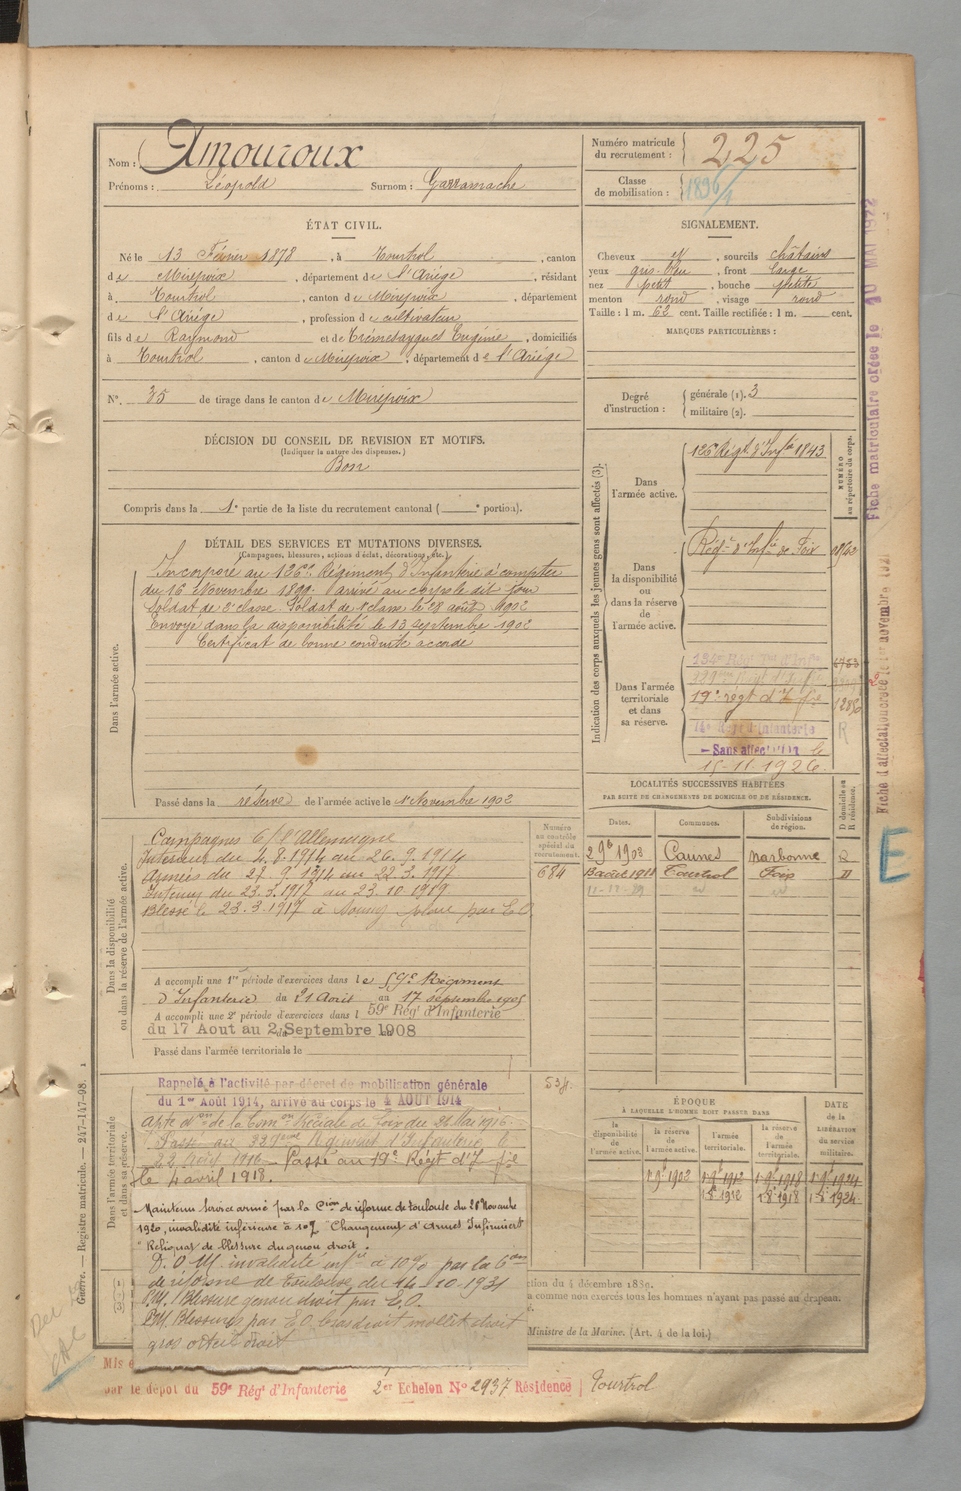 Nom : Amouroux
Prénoms : Léopold Surnom : Garramache
Numéro matricule du recrutement : 225
Classe de mobilisation : 1896/4
ÉTAT CIVIL.
Né le 13 Février 1878, à Tourtrol, canton
de Mirepoix, département de l'Ariège, résidant
à Tourtrol, canton de Mirepoix, département
de l'Ariège, profession de cultivateur
fils de Raymond et de Eugénie, domiciliés
à Tourtrol, canton de Mirepoix, département de l'Ariège
N°. 35 de tirage dans le canton de Mirepoix
SIGNALEMENT.
Cheveux N, sourcils châtains
yeux gris-bleu, front large
nez petit, bouche petite
menton rond, visage rond
Taille : 1 m. 62 cent. Taille rectifiée : 1 m. cent.
MARQUES PARTICULIÈRES :
Degré d'instruction : générale (1). 3
militaire (2).
DÉCISION DU CONSEIL DE REVISION ET MOTIFS.
(Indiquer la nature des dispenses.)
Bon
Compris dans la 1e partie de la liste du recrutement cantonal ( e portion).
DÉTAIL DES SERVICES ET MUTATIONS DIVERSES.
(Campagnes, blessures, actions d'éclat, décorations, etc.)
Dans l'armée active.
Incorporé au 126e Régiment d'Infanterie à compter
du 16 Novembre 1899. arrivé au corps le dit jour
Soldat de 2e classe. Soldat de 1e classe le 28 août 1902
Envoyé dans la disponibilité le 13 septembre 1902
Certificat de bonne conduite accordé
Passé dans la réserve de l'armée active le 1er Novembre 1902
Indication des corps auxquels les jeunes gens sont affectés (3).
NUMÉRO au répertoire du corps.
Dans l'armée active.
126 Régt d'Infie 1843
Dans la disponibilité ou dans la réserve de l'armée active.
Régt d'Infie de Foix
Dans l'armée territoriale et dans sa réserve.
134e Régt Tal d'Infie
329me Régt d'Infie
19e régt d'Infie
14e Régt d'Infanterie
Sans affectation le
15-11-1926.
Dans la disponibilité ou dans la réserve de l'armée active.
Campagnes c/ l'Allemagne
Intérieur du 4.8.1914 au 26.9.1914
Armées du 27.9.1914 au 22.3.1917
Intérieur du 23.3.1917 au 23.10.1919.
Blessé le 23.3.1917 à
Numéro au contrôle spécial du recrutement.
684
A accompli une 1re période d'exercices dans le 59e Régiment
d'Infanterie du 21 Août au 17 septembre 1905
A accompli une 2e période d'exercices dans l 59e Régt d'Infanterie
du 17 Aout au 2 Septembre 1908
Passé dans l'armée territoriale le
LOCALITÉS SUCCESSIVES HABITÉES
PAR SUITE DE CHANGEMENTS DE DOMICILE OU DE RÉSIDENCE.
Dates. Communes. Subdivisions de région. D domicile ou R résidence.
29 1903 Caunes Narbonne R
Tourtrol Foix
Dans l'armée territoriale et dans sa réserve.
Rappelé à l'activité par décret de mobilisation générale
du 1er Août 1914, arrivé au corps le 4 AOUT 1914
de la Comon Spéciale de Foix du 26 Mai 1916.
Passé au 329eme Régiment d'Infanterie le
22 Août 1916. Passé au 19e Régt d'Infie
le 4 avril 1918.
Maintenu service armé par la Cion de réforme de toulouse du 28 Novembre
1920, invalidité inférieure à 10% "Changement d'Armes Infirmiers
"Reliquat de blessure du genou droit.
invalidité infre à 10% par la 6em
de réforme de Toulouse du 14-10-1931
P.M. Blessure genou droit par E.O.
P.M. Blessures par E.O. bras droit mollet droit
gros orteil droit
ÉPOQUE
À LAQUELLE L'HOMME DOIT PASSER DANS
la disponibilité de l'armée active. la réserve de l'armée active. l'armée territoriale. la réserve de l'armée territoriale.
DATE DE LA LIBÉRATION du service militaire.
1-9e 1902 1-9e 1912 1-9e 1918 1-9e 1924
1-8 1912 1-8-1918 1-8-1924
ction du 4 décembre 1889.
a comme non exercés tous les hommes n'ayant pas passé au drapeau.
Ministre de la Marine. (Art. 4 de la loi.)
par le dépôt du 59e Régt d'Infanterie 2er Echelon N° 2937 Résidence Tourtrol
Guerre. — Registre matricule. — 247-147-98.
Fiche matriculaire créée le 10 MAI 1922
Fiche d'affectation créée le 1er novembre 1921
E